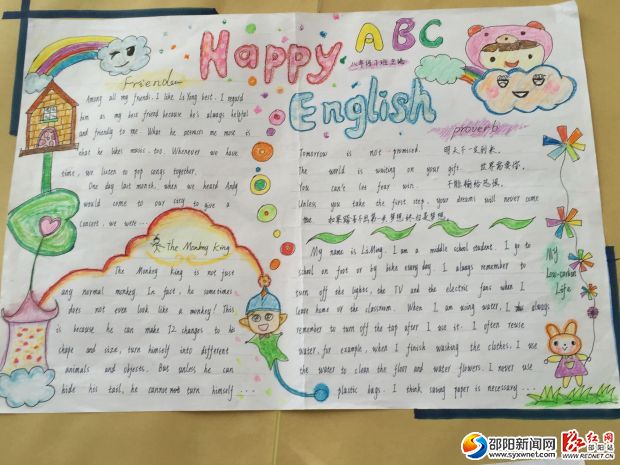 Happy ABC
English
Friend
Among all my friends, I like Li Ying best. I regard
him as my best friend because he's always helpful
and friendly to me. What he
me most is
that he likes music, too. Whenever we have
time, we listen to pop songs together.
One day last month, when we heard Andy
would come to our city to give a
concert, we were ...
The Monkey King
The Monkey king is not just
any normal monkey. In fact, he sometimes
does not even look like a monkey! This
is because he can make 72 changes to his
shape and size, turn himself into different
animals and objects. But unless he can
hide his tail, he cannot turn himself ...
proverb
Tomorrow is not promised.
The world is waiting on your gift. 世界需要你。
You can't let fear win. 不能输给恐惧。
Unless you take the first step, your dreams will never come
true.
My name is LiMing. I am a middle school student. I go to
school on foot or by bike every day. I always remember to
turn off the lights, the TV and the electric fans when I
leave home or the classroom. When I am using water, I always
remember to turn off the tap after I use it. I often reuse
water, for example, when I finish washing the clothes, I use
the water to clean the floor and water flowers. I never use
plastic bags. I think saving paper is necessary ...
My
Low-carbon
Life
邵阳新闻网
www.syxwnet.com
红网
邵阳站
WWW.REDNET.CN